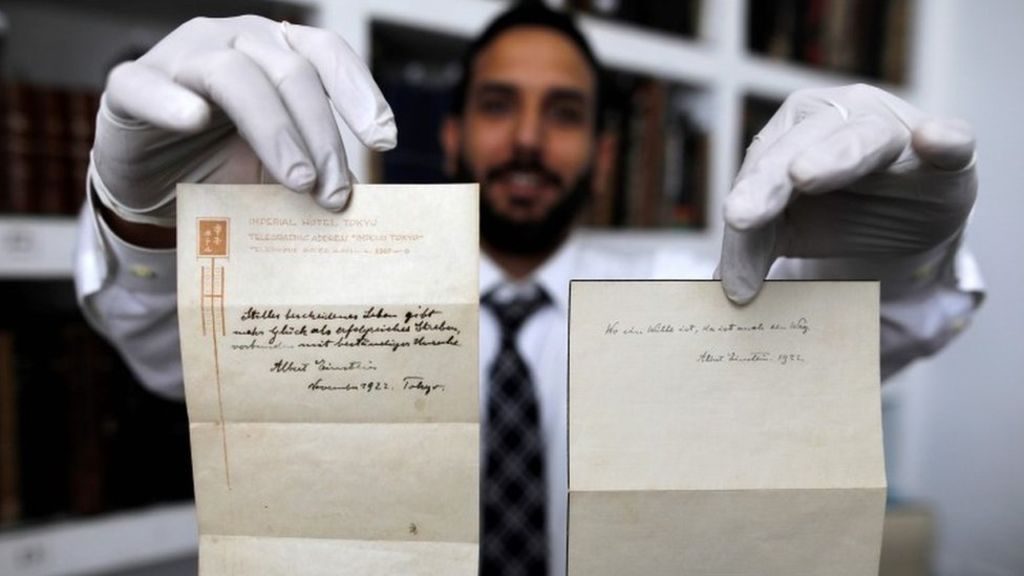 IMPERIAL HOTEL TOKYO
TELEGRAPHIC ADDRESS "IMPEHO TOKYO"
Stilles bescheidenes Leben gibt
mehr Glück als erfolgreiches Streben,
verbunden mit beständiger Unruhe
Albert Einstein
November 1922. Tokyo.
Wo ein Wille ist, da ist auch ein Weg.
Albert Einstein. 1922.